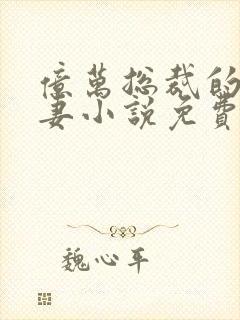 億萬总裁的
妻小説免費
魏心平